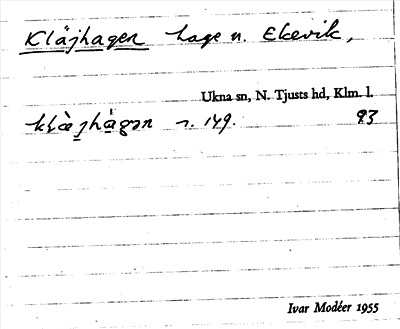 Kläjhagen hage n. Ekevik,
Ukna sn, N. Tjusts hd, Klm. l.
s. 149. 93
Ivar Modéer 1955